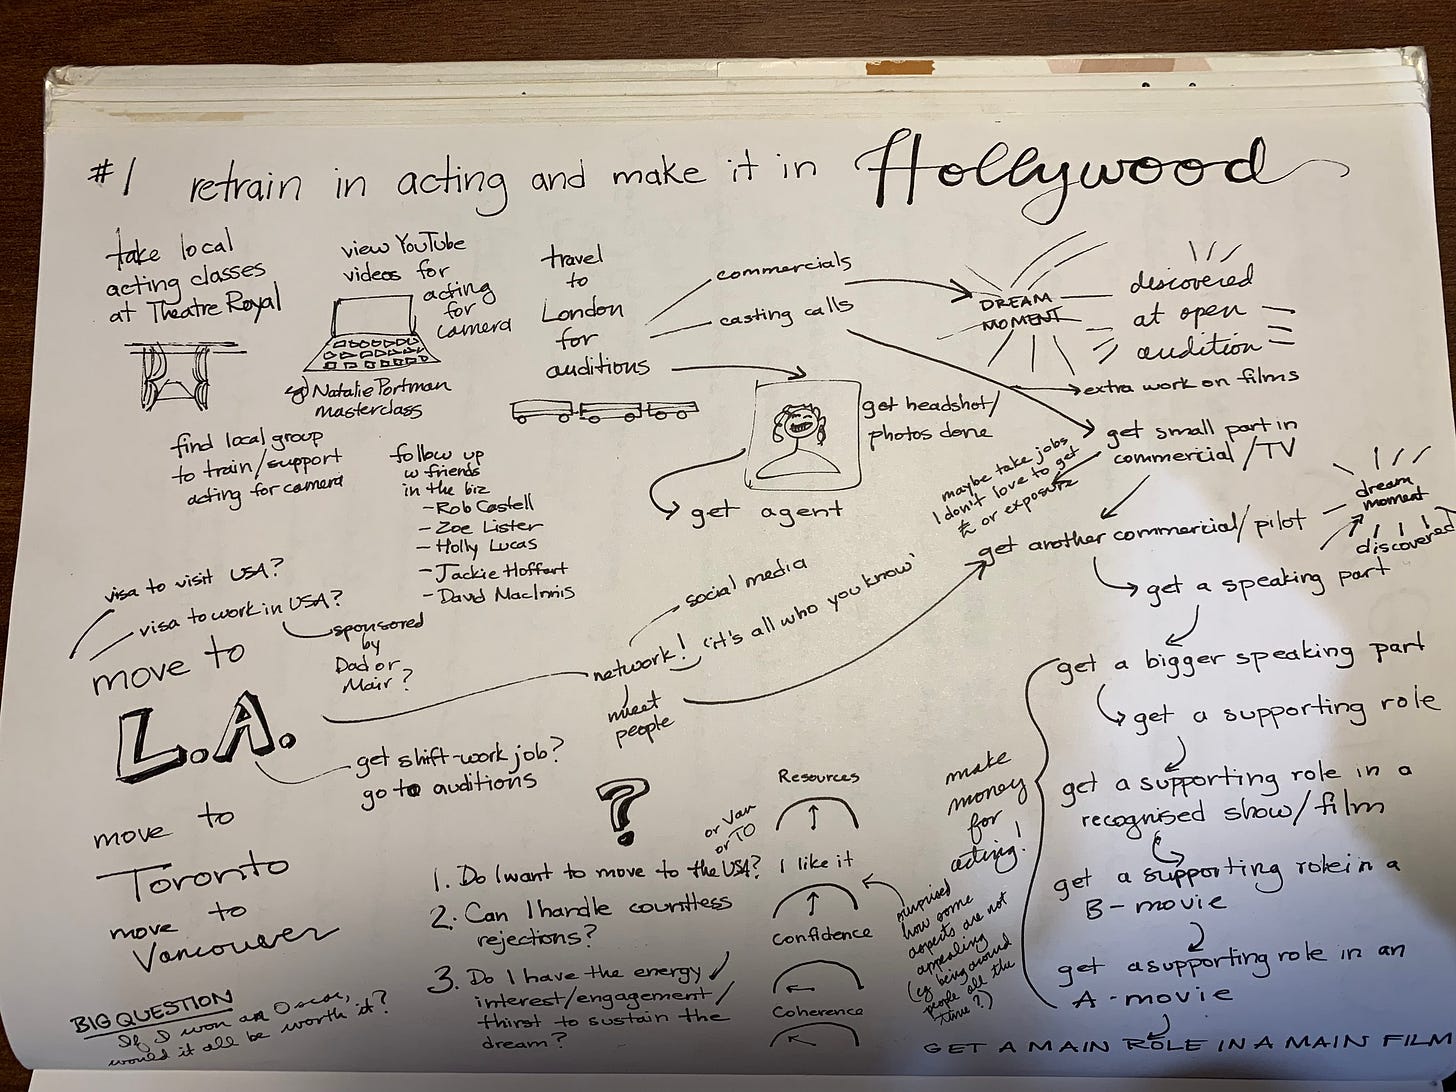 #1 retrain in acting and make it in Hollywood
take local
acting classes
at Theatre Royal
view YouTube
videos for
acting
for
camera
eg Natalie Portman
masterclass
travel
to
London
for
auditions
commercials
casting calls
DREAM
MOMENT
discovered
at open
audition
extra work on films
get headshot/
photos done
get agent
get small part in
commercial/TV
maybe take jobs
I don't love to get
£ or exposure
get another commercial/pilot
dream
moment
discovered
find local group
to train/support
acting for camera
follow up
w friends
in the biz
- Rob Castell
- Zoe Lister
- Holly Lucas
- Jackie Hoffart
- David MacInnis
visa to visit USA?
visa to work in USA?
sponsored
by
Dad or
Mair?
move to
L.A.
get shift-work job?
go to auditions
network!
social media
'it's all who you know'
meet
people
get a speaking part
get a bigger speaking part
get a supporting role
get a supporting role in a
recognised show/film
get a supporting role in a
B-movie
get a supporting role in an
A-movie
GET A MAIN ROLE IN A MAIN FILM
make
money
for
acting!
move to
Toronto
move to
Vancouver
BIG QUESTION
If I won an Oscar,
would it all be worth it?
?
or Van
or TO
1. Do I want to move to the USA?
2. Can I handle countless
rejections?
3. Do I have the energy/
interest/engagement/
thirst to sustain the
dream?
Resources
I like it
Confidence
Coherence
surprised
how some
aspects are not
appealing
(eg being around
people all the
time?)